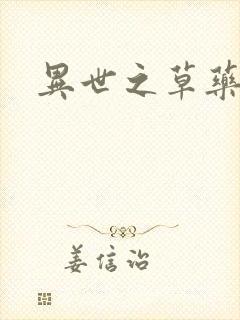 異世之草藥
姜信治